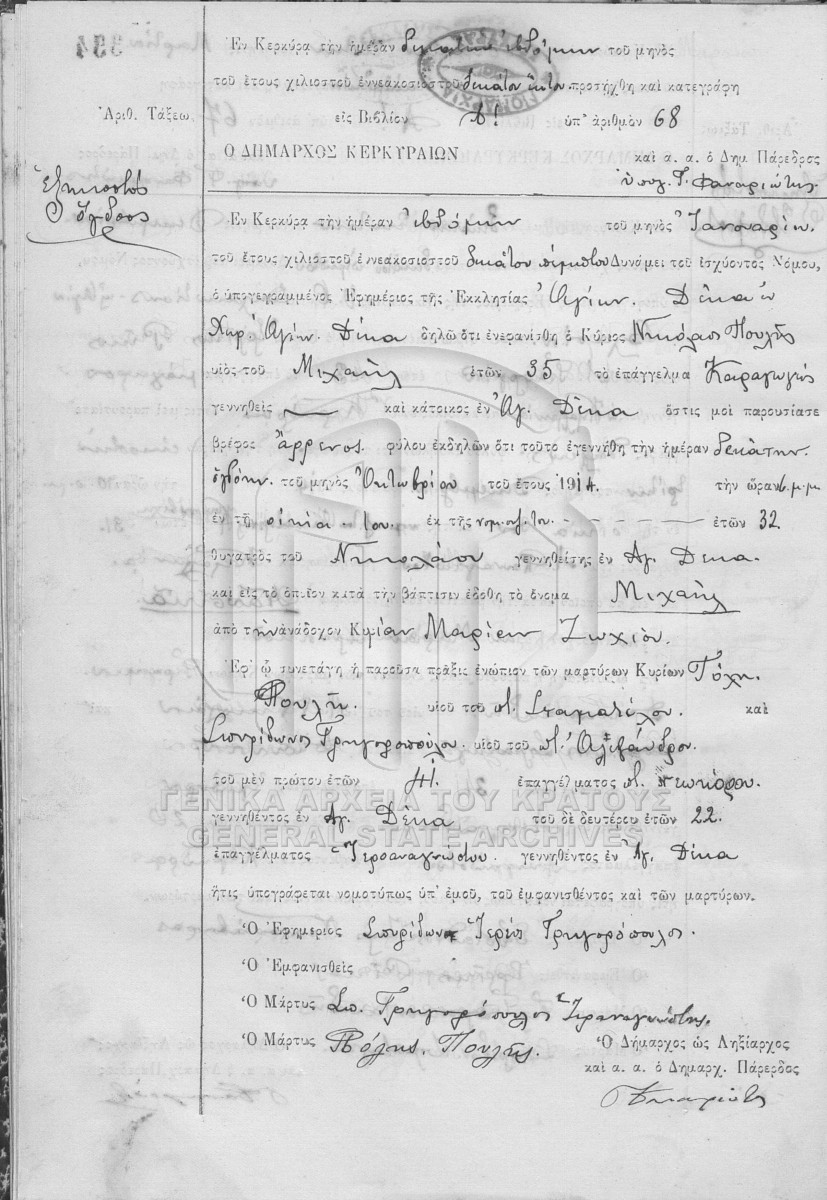 Ἐν Κερκύρᾳ τὴν ἡμέραν δεκάτην ἑβδόμην τοῦ μηνὸς
τοῦ ἔτους χιλιοστοῦ ἐννεακοσιοστοῦ δεκάτου ἕκτου προσήχθη καὶ κατεγράφη
Ἀριθ. Τάξεω εἰς Βιβλίον Α! ὑπ' ἀριθμὸν 68
Ο ΔΗΜΑΡΧΟΣ ΚΕΡΚΥΡΑΙΩΝ καὶ α. α. ὁ Δημ Πάρεδρος
ὑπογ. Γ. Φαναριώτης.
Ἑξηκοστὸς
Ὄγδοος
Ἐν Κερκύρᾳ τὴν ἡμέραν ἑβδόμην τοῦ μηνὸς Ἰανουαρίου.
τοῦ ἔτους χιλιοστοῦ ἐννεακοσιοστοῦ δεκάτου πέμπτου Δυνάμει τοῦ ἰσχύοντος Νόμου,
ὁ ὑπογεγραμμένος Ἐφημέριος τῆς Ἐκκλησίας Ἁγίων. Δέκα
Χωρ. Ἁγίων. Δέκα δηλῶ ὅτι ἐνεφανίσθη ὁ Κύριος Νικόλαος Πουλῆς
υἱὸς τοῦ Μιχαὴλ ἐτῶν 35 τὸ ἐπάγγελμα Καραγωγεὺς
γεννηθεὶς — καὶ κάτοικος ἐν Ἁγ. Δέκα ὅστις μοὶ παρουσίασε
βρέφος ἄρρενος. φύλου ἐκδηλῶν ὅτι τοῦτο ἐγεννήθη τὴν ἡμέραν δεκάτην.
ὀγδόην. τοῦ μηνὸς Ὀκτωβρίου τοῦ ἔτους 1914. τὴν ὥραν 6 μ.μ
ἐν τῇ οἰκίᾳ του. ἐκ τῆς νομ. συζ. του. - - - - ἐτῶν 32
θυγατρὸς τοῦ Νικολάου γεννηθείσης ἐν Ἁγ. Δέκα.
καὶ εἰς τὸ ὁποῖον κατὰ τὴν βάπτισιν ἐδόθη τὸ ὄνομα Μιχαὴλ
ἀπὸ τὴν ἀνάδοχον Κυρίαν Μαρίαν Ζωχιοῦ.
Ἐφ' ᾧ συνετάγη ἡ παροῦσα πρᾶξις ἐνώπιον τῶν μαρτύρων Κυρίων
Πουλῆ. υἱοῦ τοῦ π. Σταματέλου. καὶ
Σπυρίδωνος Γρηγοροπούλου. υἱοῦ τοῦ π. Ἀλεξάνδρου.
τοῦ μὲν πρώτου ἐτῶν 41. ἐπαγγέλματος νεωκόρου.
γεννηθέντος ἐν Ἁγ. Δέκα τοῦ δὲ δευτέρου ἐτῶν 22.
ΓΕΝΙΚΑ ΑΡΧΕΙΑ ΤΟΥ ΚΡΑΤΟΥΣ
GENERAL STATE ARCHIVES
ἐπαγγέλματος Ἱεροαναγνώστου. γεννηθέντος ἐν Ἁγ. Δέκα
ἥτις ὑπογράφεται νομοτύπως ὑπ' ἐμοῦ, τοῦ ἐμφανισθέντος καὶ τῶν μαρτύρων.
Ὁ Ἐφημέριος Σπυρίδων Ἱερεὺς Γρηγορόπουλος.
Ὁ Ἐμφανισθεὶς
Ὁ Μάρτυς Σπ. Γρηγορόπουλος Ἱεραναγνώστης.
Ὁ Μάρτυς Πουλῆς. Ὁ Δήμαρχος ὡς Ληξίαρχος
καὶ α. α ὁ Δημαρχ. Πάρεδρος